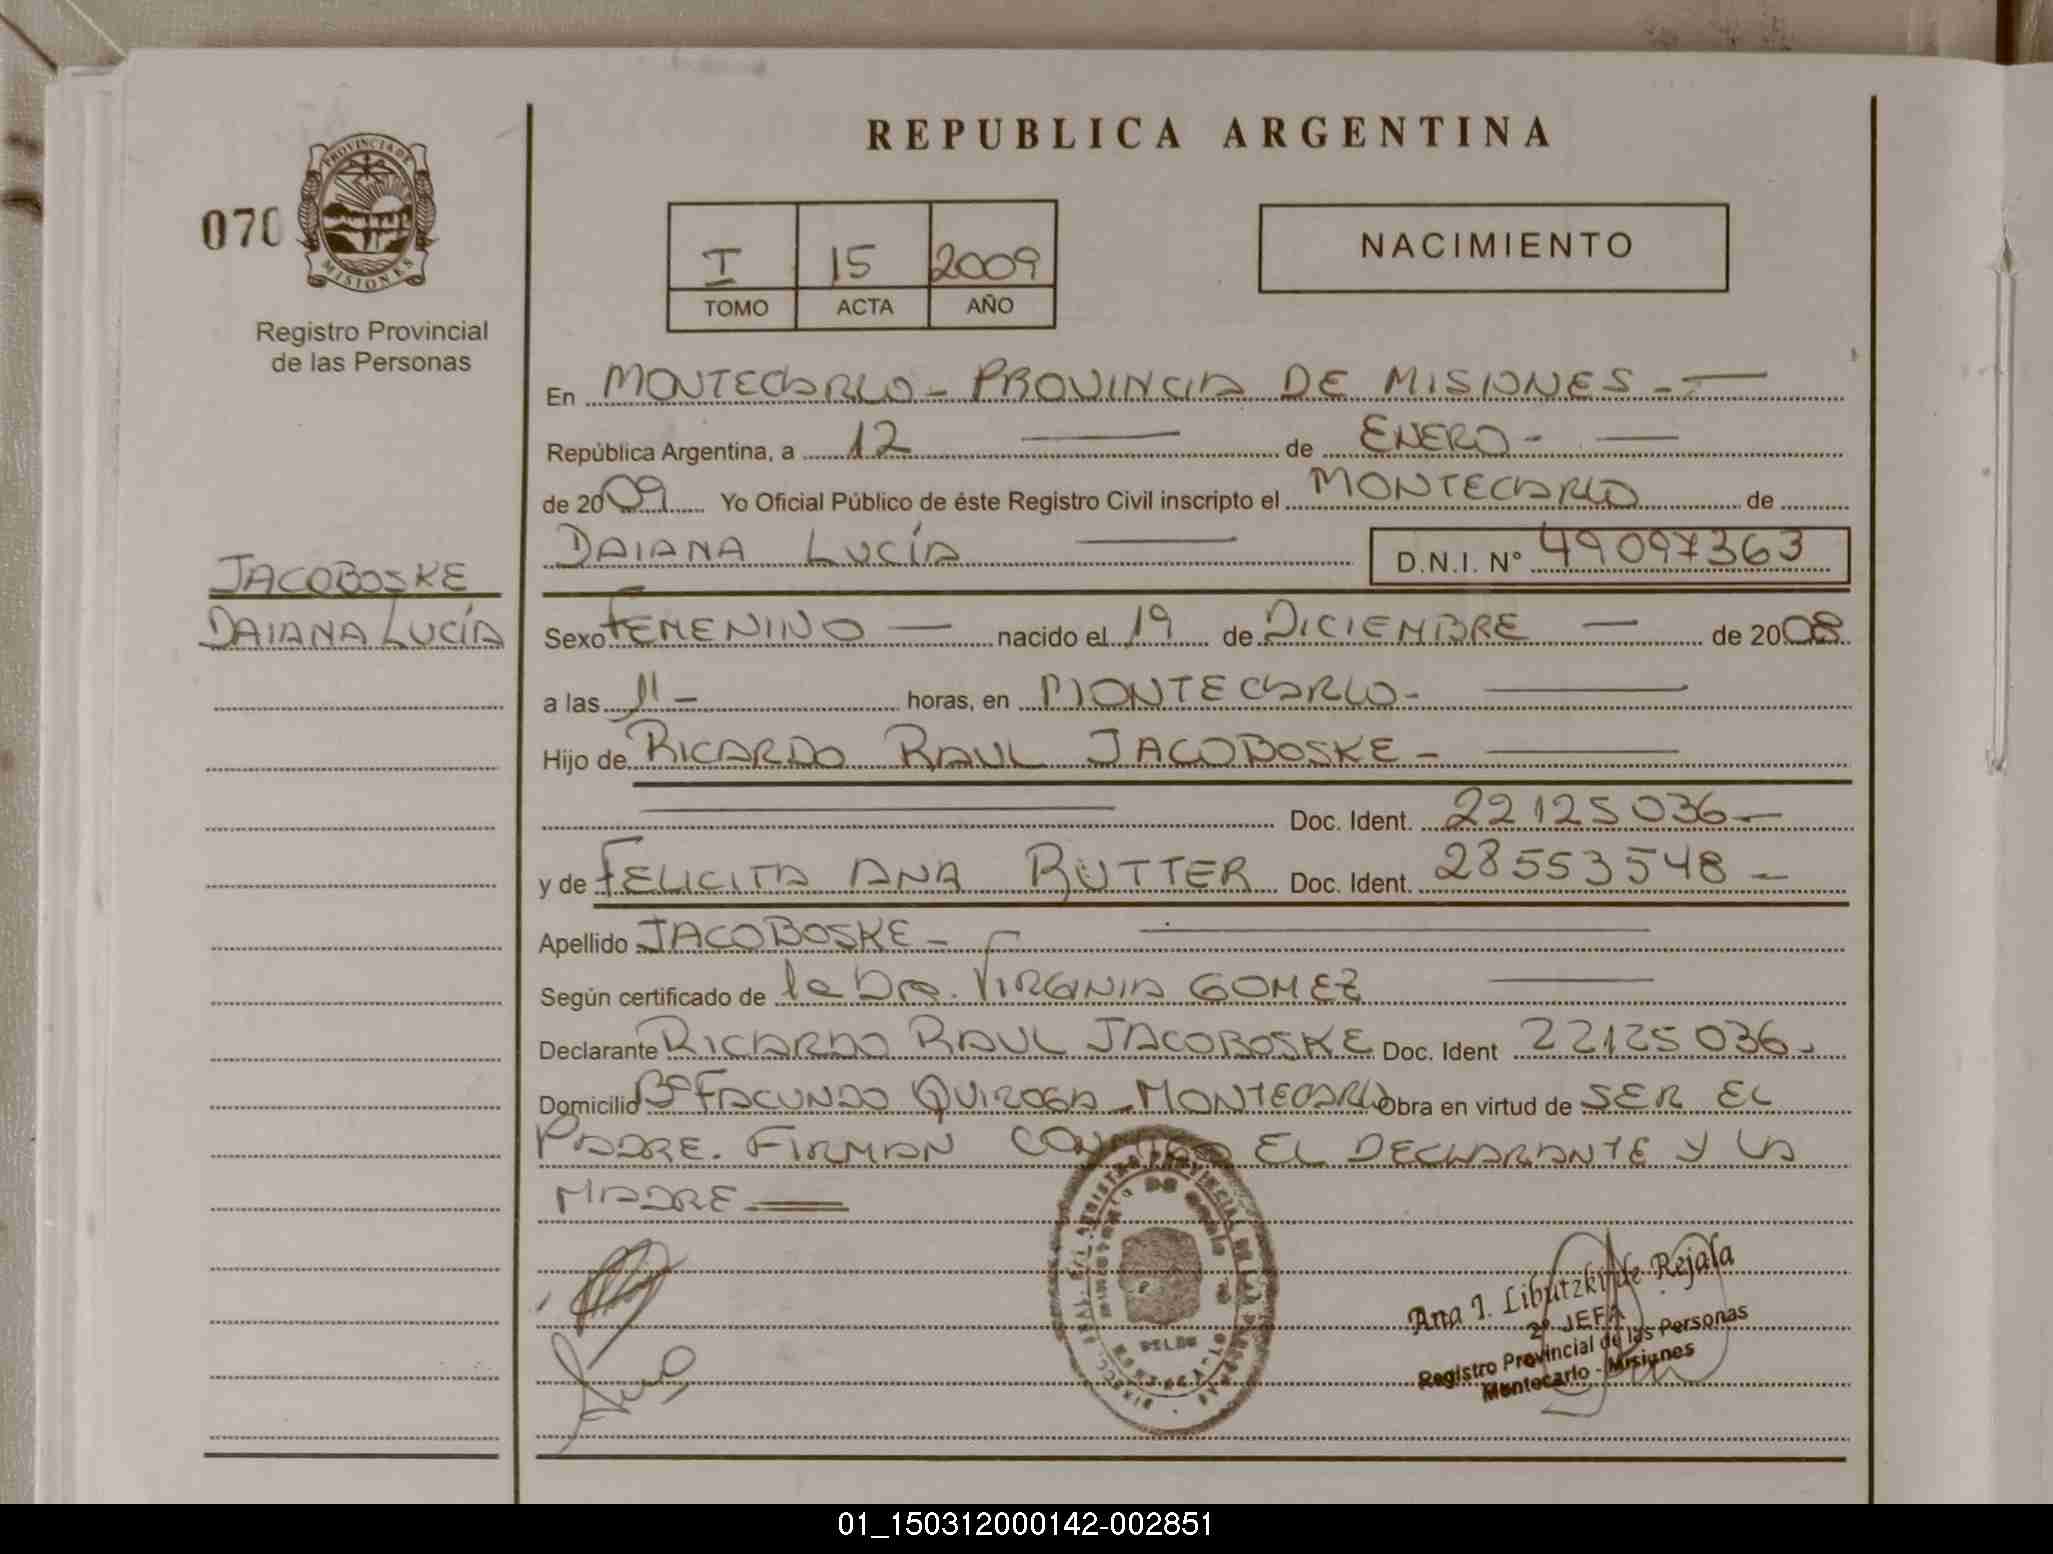 REPUBLICA ARGENTINA
070
PROVINCIA DE MISIONES
Registro Provincial
de las Personas
I 15 2009
TOMO ACTA AÑO
NACIMIENTO
En MONTECARLO - PROVINCIA DE MISIONES -
República Argentina, a 12 de ENERO -
de 2009 Yo Oficial Público de éste Registro Civil inscripto el MONTECARLO de
DAIANA LUCÍA D.N.I. N° 49097363
JACOBOSKE
DAIANA LUCÍA
Sexo FEMENINO — nacido el 19 de DICIEMBRE — de 2008
a las 11 - horas, en MONTECARLO -
Hijo de RICARDO RAUL JACOBOSKE -
Doc. Ident. 22125036 -
y de FELICITA ANA RUTTER Doc. Ident. 28553548 -
Apellido JACOBOSKE -
Según certificado de la Dra. VIRGINIA GOMEZ
Declarante RICARDO RAUL JACOBOSKE Doc. Ident 22125036 -
Domicilio B° FACUNDO QUIROGA - MONTECARLO Obra en virtud de SER EL
PADRE. FIRMAN CONMIGO EL DECLARANTE Y LA
MADRE
Ana I. Libutzki de Rejala
2° JEFA
Registro Provincial de las Personas
Montecarlo - Misiones
01_150312000142-002851